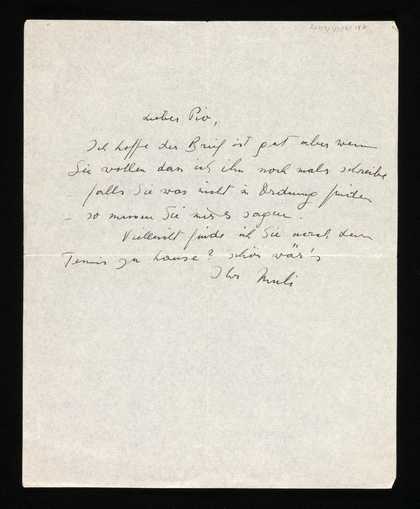 Lieber Pio,
Ich hoffe der Brief ist gut aber wenn
Sie wollen dass ich ihn noch mals schreibe
falls Sie was nicht in Ordnung finden
– so müssen Sie mir's sagen.
Vielleicht finde ich Sie nach dem
Tennis zu hause? schön wär's
Ihr